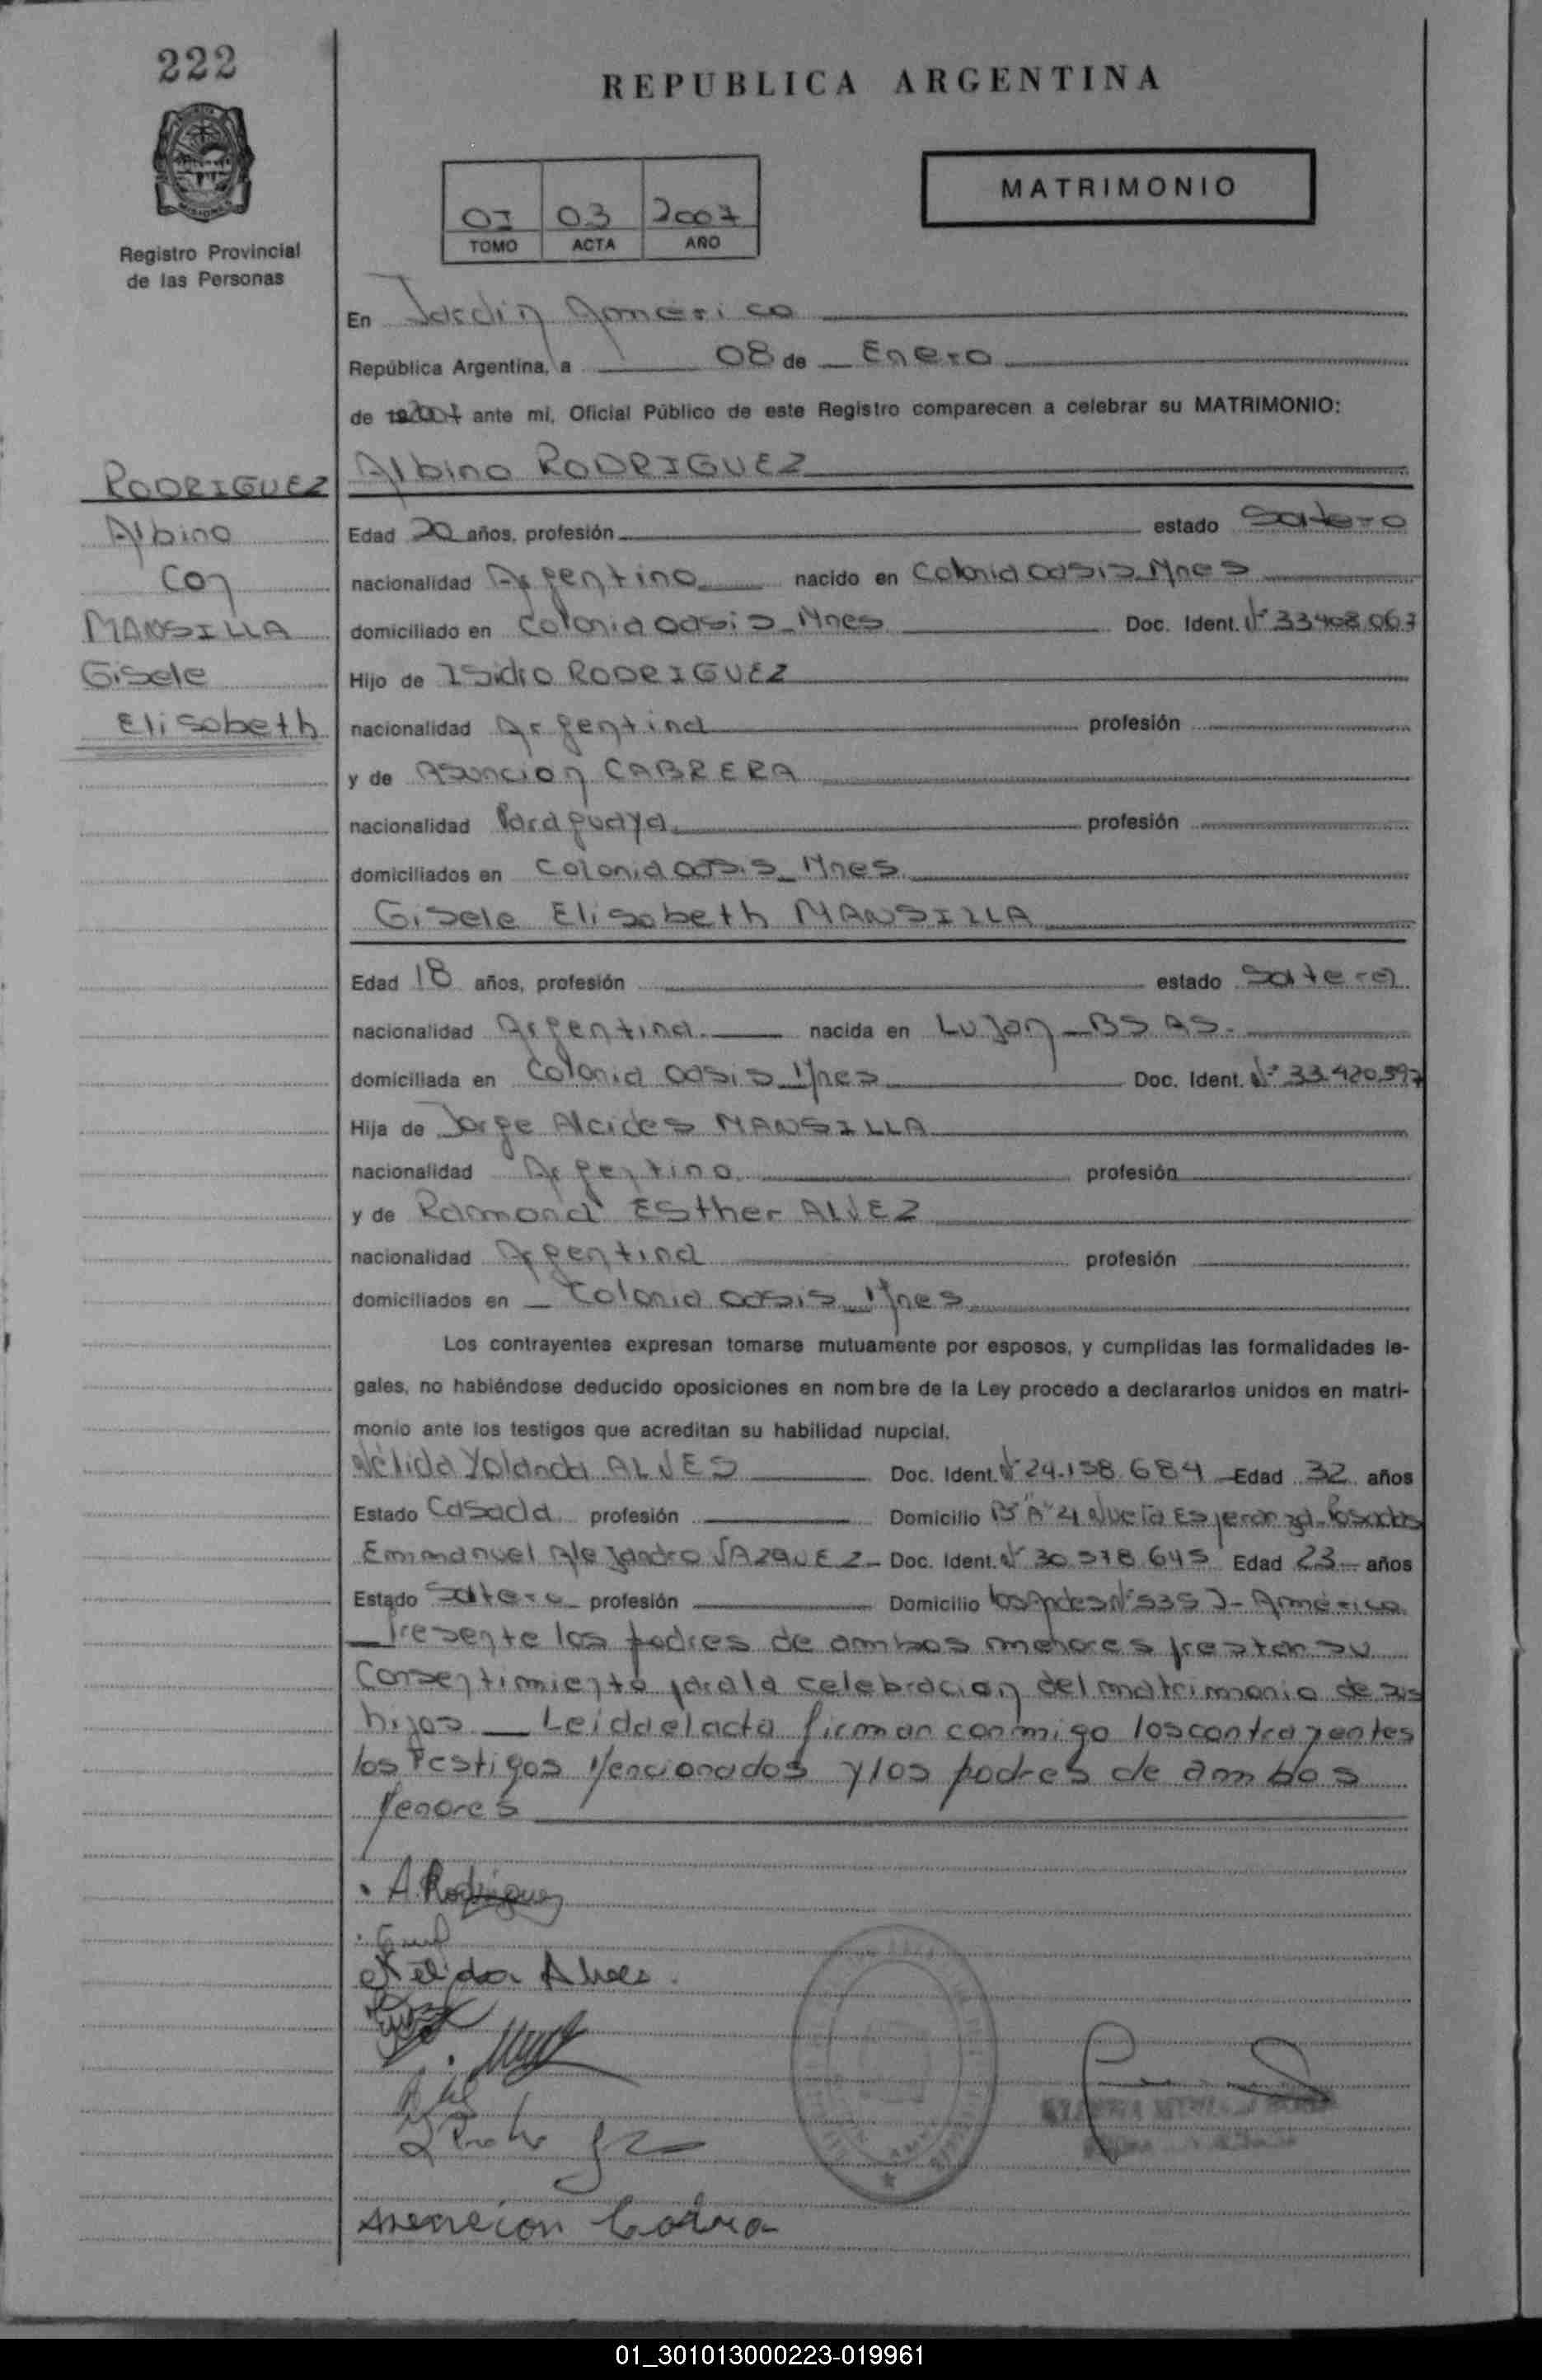 222
REPUBLICA ARGENTINA
MATRIMONIO
01 03 2007
TOMO ACTA AÑO
Registro Provincial
de las Personas
En Jardin America
República Argentina, a 08 de Enero
de 2007 ante mi, Oficial Público de este Registro comparecen a celebrar su MATRIMONIO:
RODRIGUEZ
Albino
Con
MANSILLA
Gisele
Elisabeth
Albino RODRIGUEZ
Edad 20 años, profesión estado Soltero
nacionalidad Argentino nacido en Colonia oasis Mnes
domiciliado en Colonia oasis - Mnes Doc. Ident. Nº 33408.067
Hijo de Isidro RODRIGUEZ
nacionalidad Argentina profesión
y de Asuncion CABRERA
nacionalidad Paraguaya profesión
domiciliados en Colonia oasis - Mnes
Gisele Elisabeth MANSILLA
Edad 18 años, profesión estado Soltera
nacionalidad Argentina nacida en Lujan - BS AS.
domiciliada en Colonia oasis Mnes Doc. Ident. Nº 33.420.597
Hija de Jorge Alcides MANSILLA
nacionalidad Argentino profesión
y de Ramona Esther ALVEZ
nacionalidad Argentina profesión
domiciliados en - Colonia oasis - Mnes
Los contrayentes expresan tomarse mutuamente por esposos, y cumplidas las formalidades le-
gales, no habiéndose deducido oposiciones en nombre de la Ley procedo a declararlos unidos en matri-
monio ante los testigos que acreditan su habilidad nupcial.
Nélida Yolanda ALVES Doc. Ident. Nº 24.158.684 Edad 32 años
Estado Casada profesión Domicilio Bº "A" 4 Nueva Esperanza - Posadas
Emmanuel Alejandro VAZQUEZ - Doc. Ident. Nº 30.578.645 Edad 23 años
Estado Soltero profesión Domicilio los Andes Nº 535 J - América
Presente los padres de ambos menores prestan su
Consentimiento para la celebracion del matrimonio de sus
hijos — Leida el acta firman conmigo los contrayentes
los Testigos Mencionados y los padres de ambos
Menores
A. Rodriguez
Nélida Alves.
Asuncion Cabrera
01_301013000223-019961